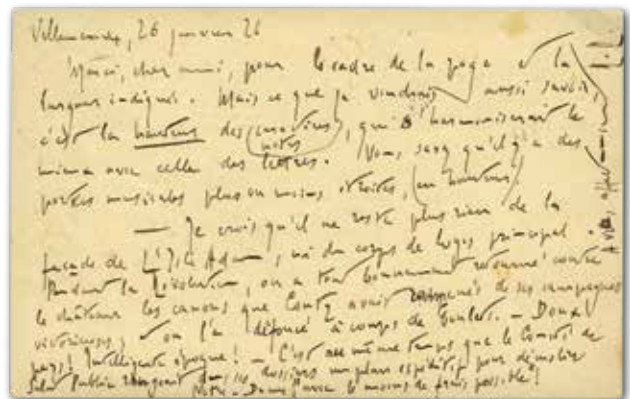 Villennes, 26 janvier 26
Merci, cher ami, pour le cadre de la page et la
largeur indiqués. Mais ce que je voudrais aussi savoir,
c'est la hauteur des (portées), qui s'harmoniserait le
notes
mieux avec celle des lettres. Vous savez qu'il y a des
portées musicales plus ou moins étroites, (en hauteur)
— Je crois qu'il ne reste plus rien de la
façade de L'Isle Adam, ni du corps de logis principal.
Pendant la Révolution, on a tout bonnement retourné contre
le château les canons que Conti avait ramenés de ses campagnes
victorieuses, et on l'a défoncé à coups de boulets. — Doux
pays! Intelligente époque! — C'est au même temps que le Comité de
Salut Public rangeait dans ses dossiers un plan expéditif pour démolir
Notre-Dame "avec le moins de frais possible"!